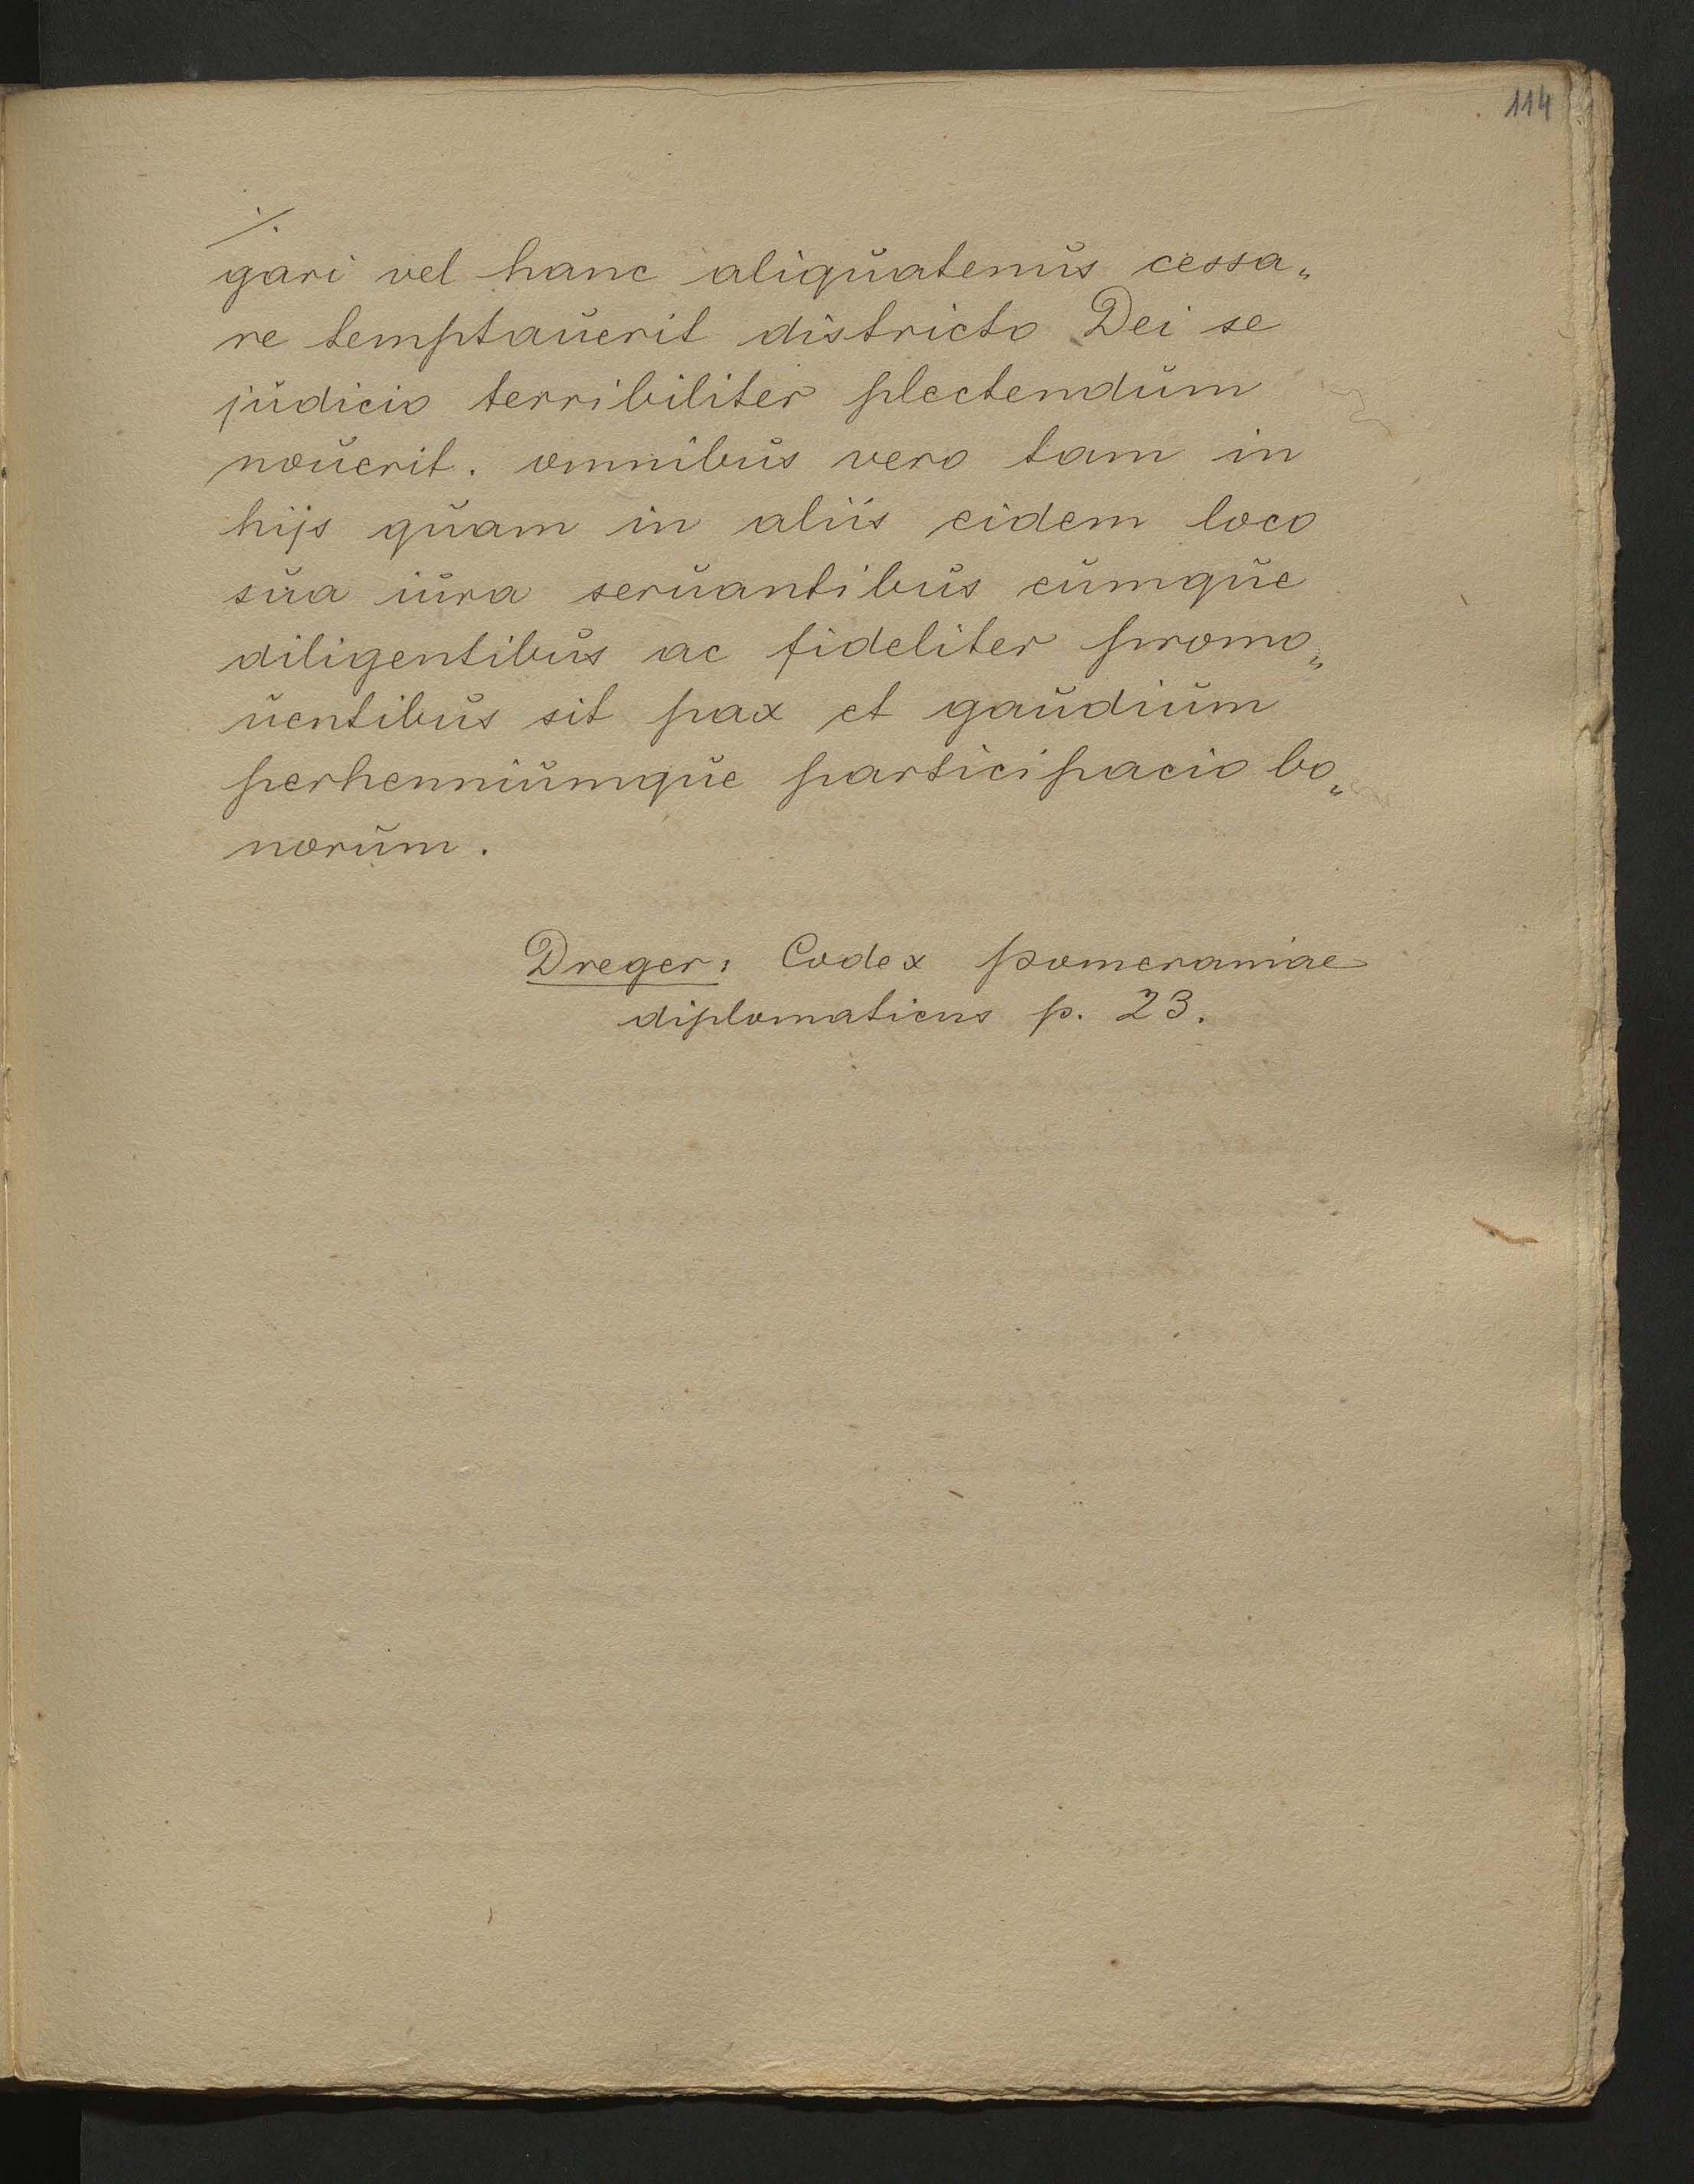 114
./.
gari vel hanc aliquatenus cessa„
re temptauerit districto Dei se
judicio terribiliter plectendum
nouerit. omnibus vero tam in
hijs quam in aliis eidem loco
sua iura seruantibus eumque
diligentibus ac fideliter promo„
uentibus sit pax et gaudium
perhenniumque participacio bo„
norum.
Dreger: Codex pomeraniae
diplomaticus p. 23.